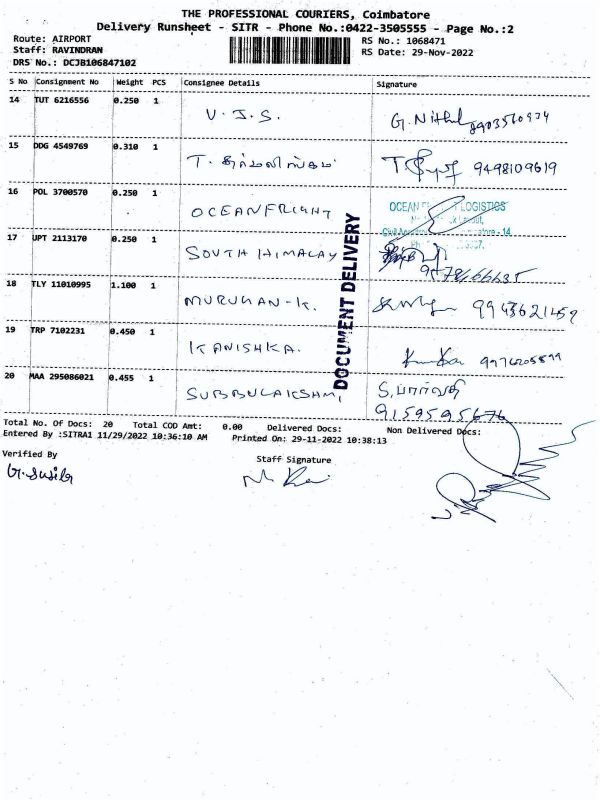 THE PROFESSIONAL COURIERS, Coimbatore
Delivery Runsheet - SITR - Phone No.:0422-3505555 - Page No.:2
Route: AIRPORT
RS No.: 1068471
Staff: RAVINDRAN
RS Date: 29-Nov-2022
DRS No.: DCJB106847102
S No Consignment No Weight PCS Consignee Details Signature
14 TUT 6216556 0.250 1 V.J.S. G. Nithul
15 DDG 4549769 0.310 1 T. தர்மலிங்கம் 9498109619
16 POL 3700570 0.250 1 OCEANFRIGHT
OCEAN LOGISTICS
17 UPT 2113170 0.250 1 SOUTH HIMALAY
DOCUMENT DELIVERY
18 TLY 11010995 1.100 1 MURUGAN-K. 9943621459
19 TRP 7102231 0.450 1 KANISHKA.
20 MAA 295086021 0.455 1 SUBBULAKSHMI, S.பார்வதி
9159595676
Total No. Of Docs: 20 Total COD Amt: 0.00 Delivered Docs: Non Delivered Docs:
Entered By :SITRA1 11/29/2022 10:36:10 AM Printed On: 29-11-2022 10:38:13
Verified By Staff Signature
G. Susila